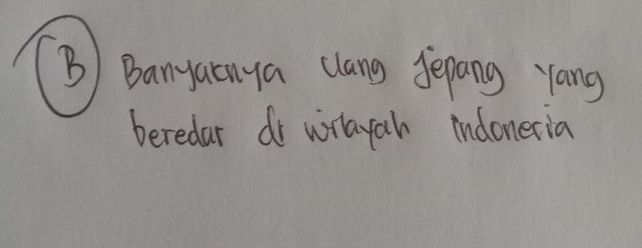 B Banyaknya uang Jepang yang
beredar di wilayah indonesia